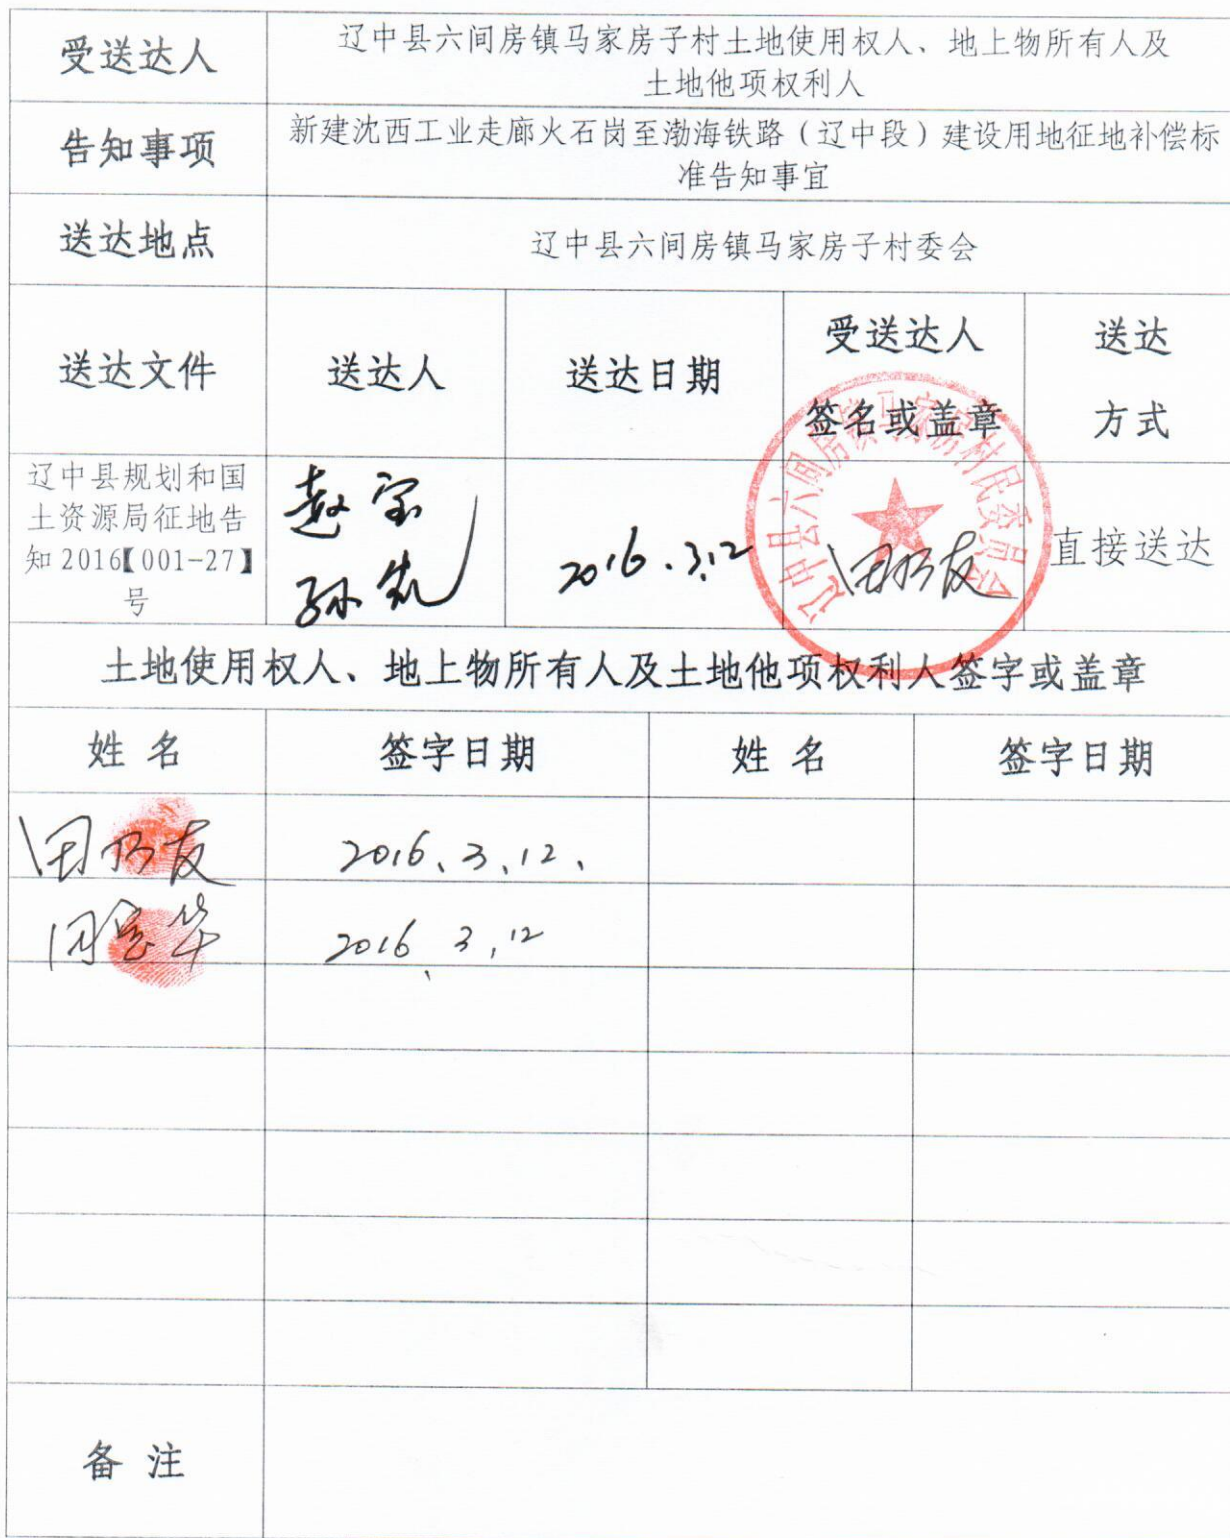 受送达人
辽中县六间房镇马家房子村土地使用权人、地上物所有人及
土地他项权利人
告知事项
新建沈西工业走廊火石岗至渤海铁路（辽中段）建设用地征地补偿标
准告知事宜
送达地点
辽中县六间房镇马家房子村委会
送达文件
送达人
送达日期
受送达人
签名或盖章
送达
方式
辽中县规划和国
土资源局征地告
知2016【001-27】
号
赵宝
孙
2016.3.12
辽中县六间房镇马家房村民委员会
田乃友
直接送达
土地使用权人、地上物所有人及土地他项权利人签字或盖章
姓 名
签字日期
姓 名
签字日期
田乃友
2016、3,12、
2016、3,12
备 注